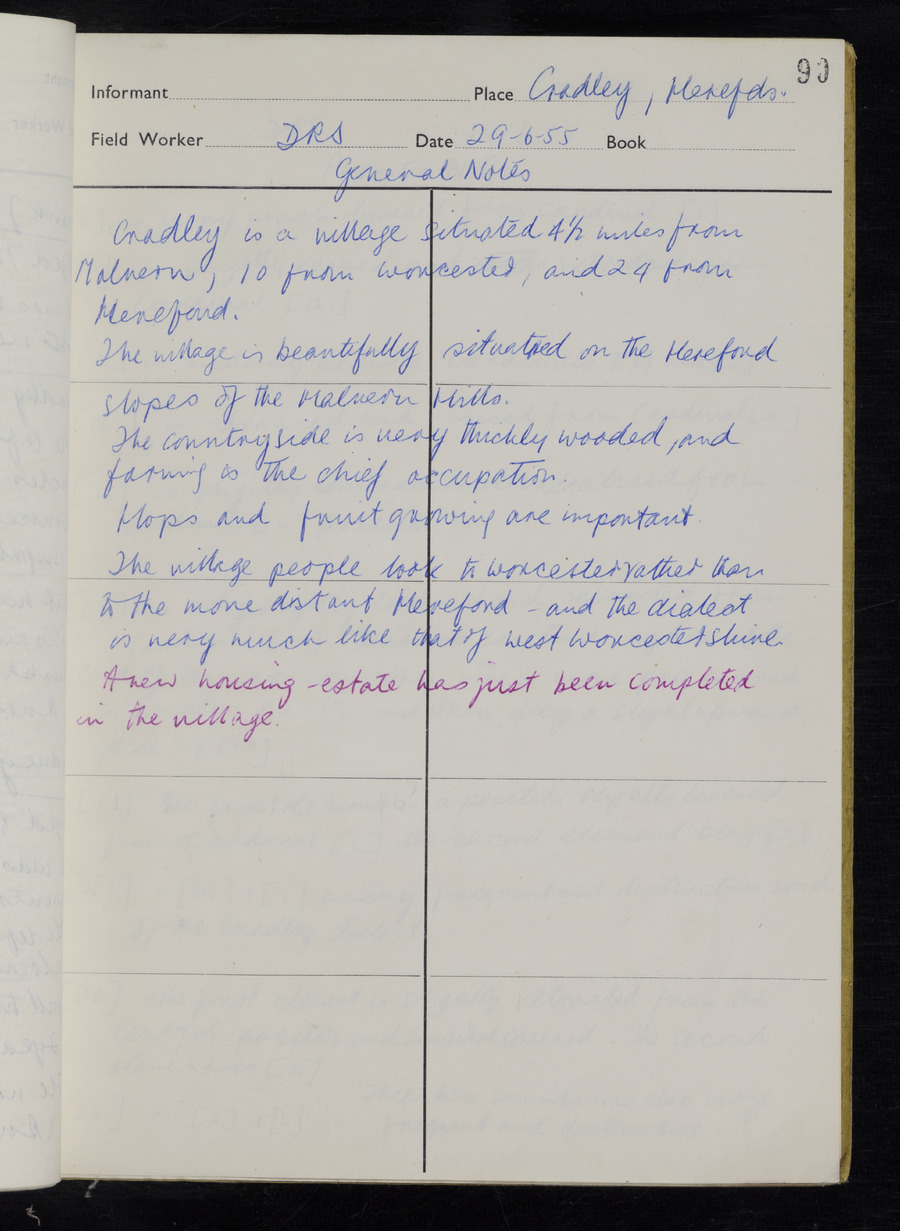 90
Informant Place Cradley, Herefds.
Field Worker DRS Date 29-6-55 Book
General Notes
Cradley is a village situated 4½ miles from
Malvern, 10 from Worcester, and 24 from
Hereford.
The village is beautifully situated on the Hereford
slopes of the Malvern Hills.
The countryside is very thickly wooded, and
farming is the chief occupation.
Hops and fruit growing are important.
The village people look to Worcester rather than
to the more distant Hereford - and the dialect
is very much like that of West Worcestershire.
A new housing-estate has just been completed
in the village.